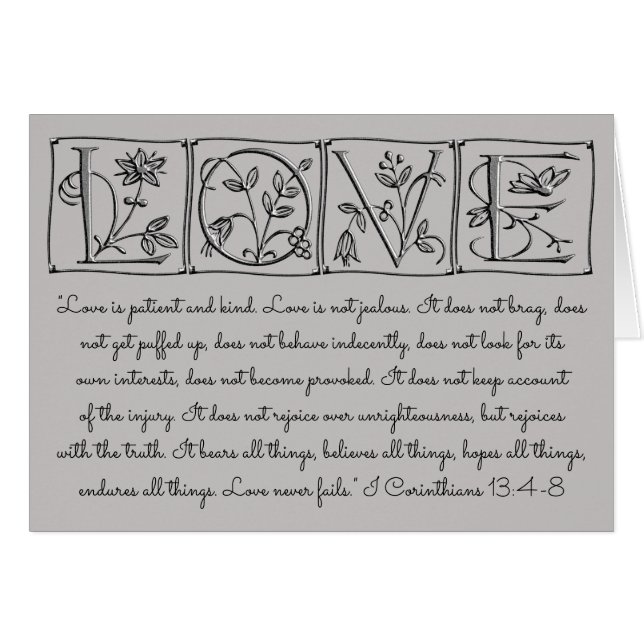 LOVE
"Love is patient and kind. Love is not jealous. It does not brag, does
not get puffed up, does not behave indecently, does not look for its
own interests, does not become provoked. It does not keep account
of the injury. It does not rejoice over unrighteousness, but rejoices
with the truth. It bears all things, believes all things, hopes all things,
endures all things. Love never fails." I Corinthians 13:4-8